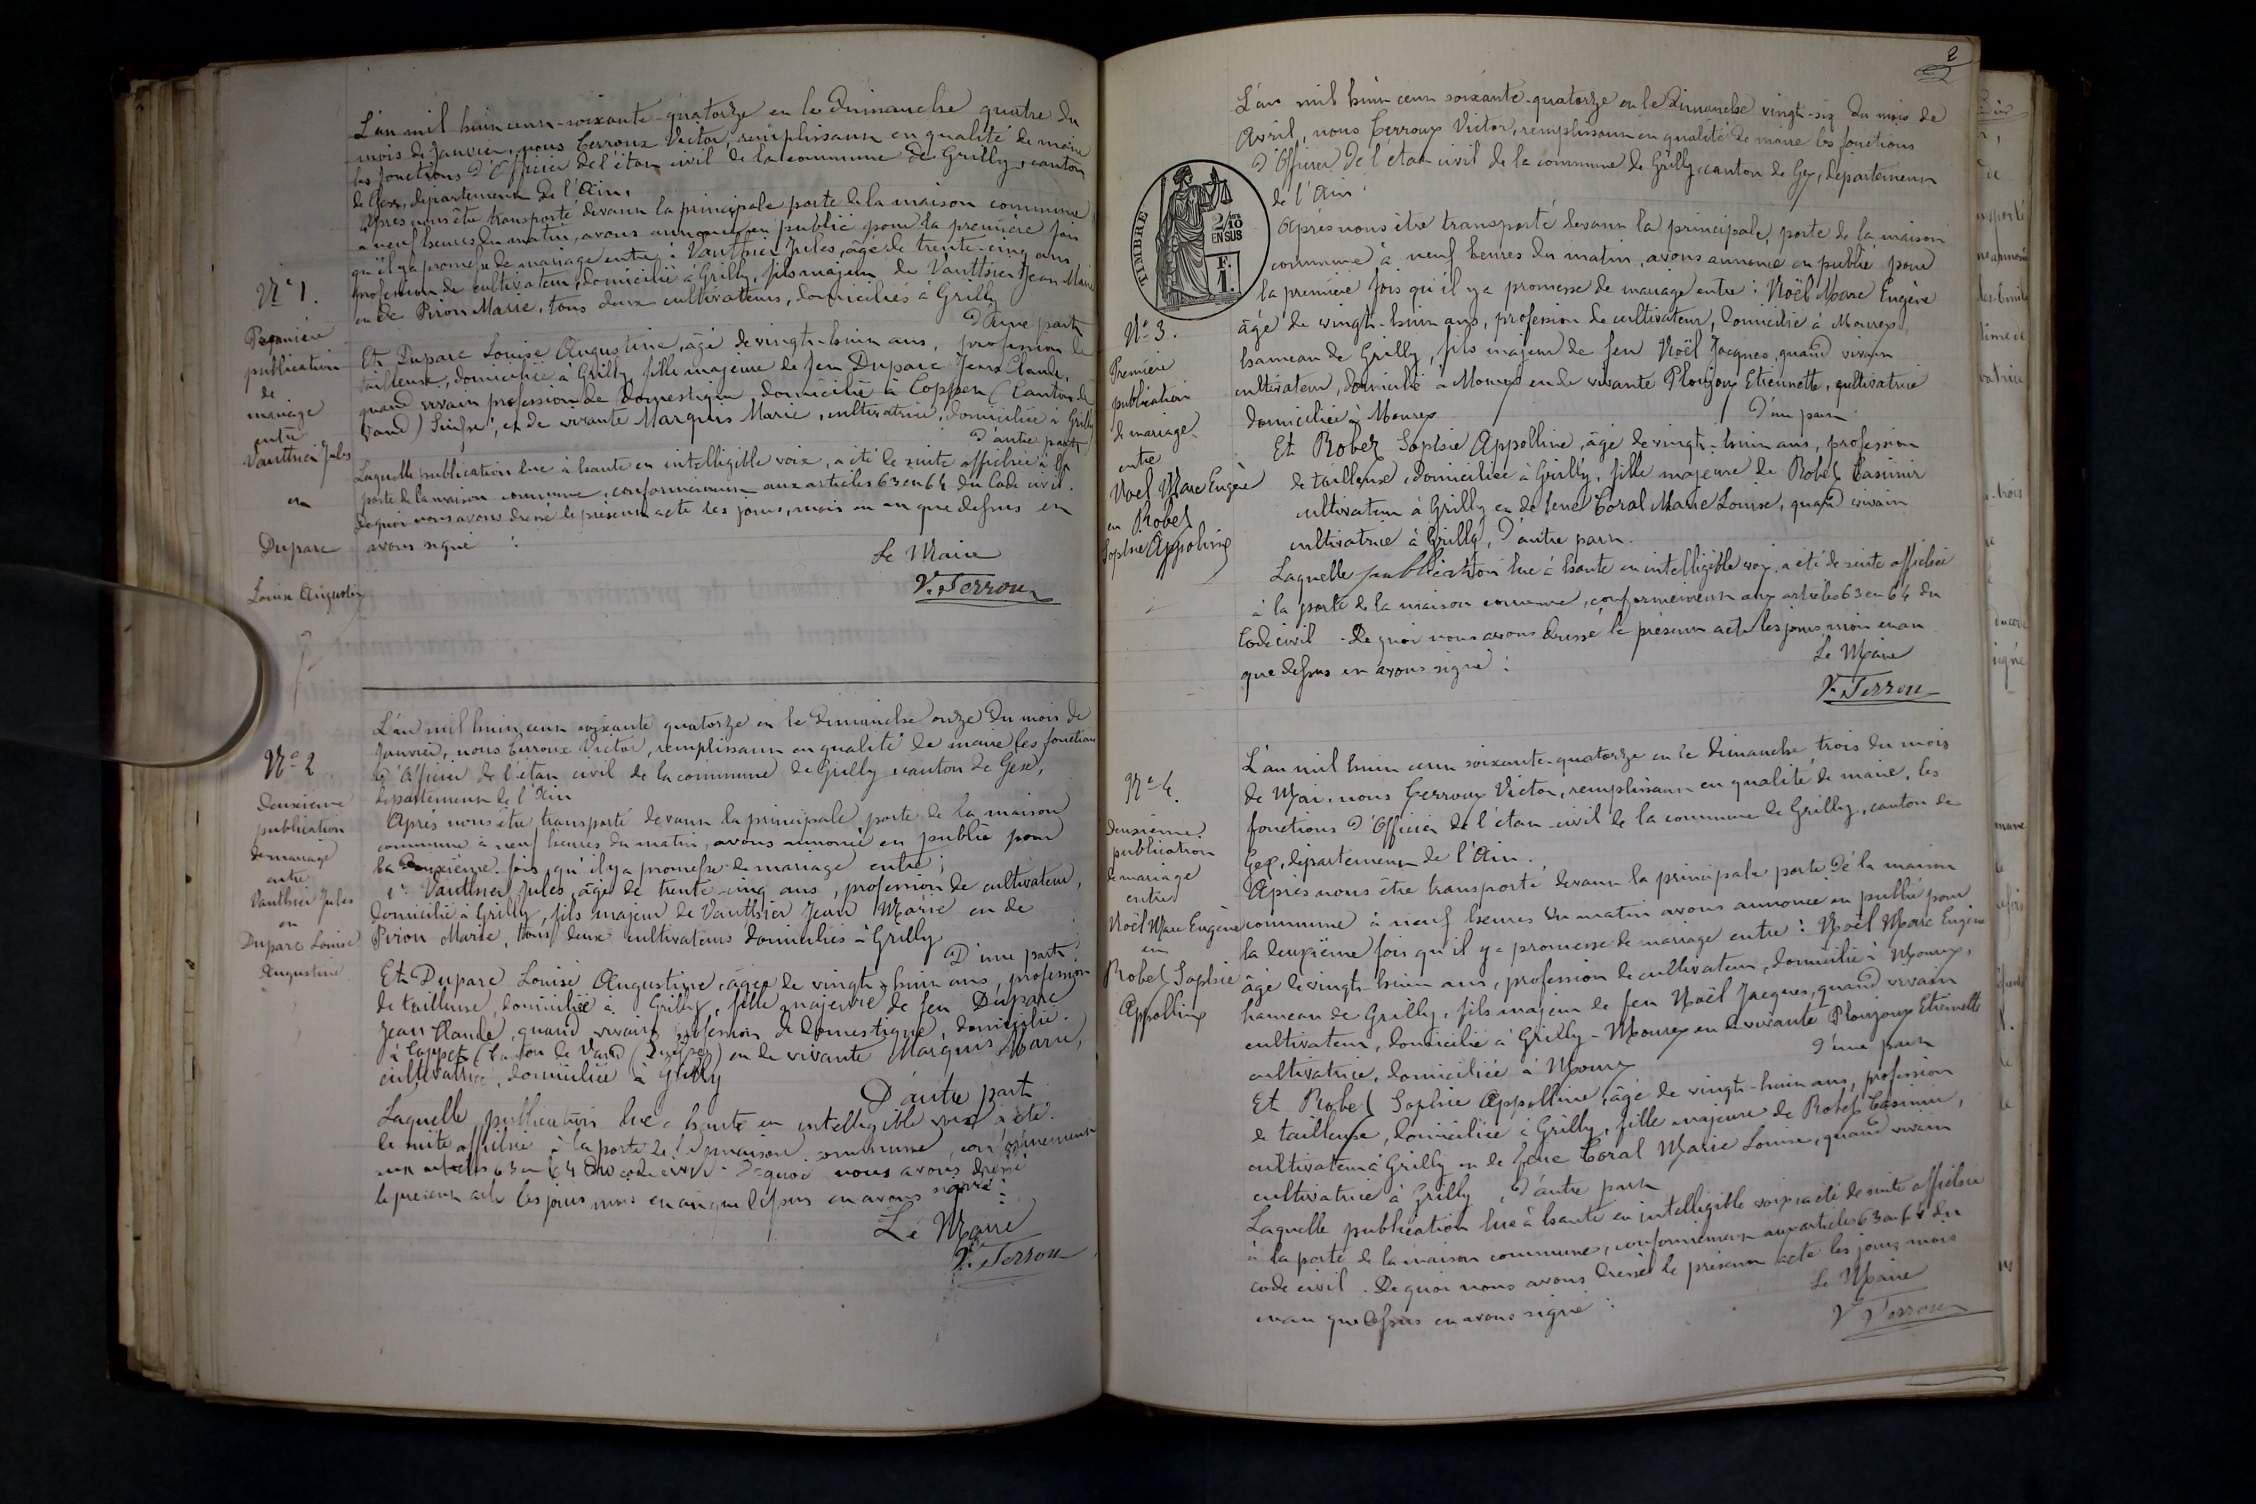 L'an mil huit cent soixante-quatorze et le Dimanche quatre du
mois de Janvier, nous Terroux Victor, remplissant en qualité de maire
les fonctions d'Officier de l'état civil de la commune de Grilly, canton
de Gex, département de l'Ain.
Après nous être transporté devant la principale porte de la maison commune
à neuf heures du matin, avons annoncé en public pour la première fois
qu'il y a promesse de mariage entre : Vautthier Jules, âgé de trente-cinq ans
profession de cultivateur, domicilié à Grilly, fils majeur de Vautthier Jean Marie
et de Piron Marie, tous deux cultivateurs, domiciliés à Grilly
d'une part
Et Duparc Louise Augustine, âgé de vingt-huit ans, profession de
tailleuse, domiciliée à Grilly, fille majeure de feu Duparc Jean Claude,
quand vivait profession de domestique domicilié à Coppet (Canton de
Vaud) Suisse, et de vivante Marquis Marie, cultivatrice, domiciliée à Grilly
d'autre part
Laquelle publication lue à haute et intelligible voix, a été de suite affichée à la
porte de la maison commune, conformément aux articles 63 et 64 du Code civil.
De quoi nous avons dressé le présent acte les jours, mois et an que dessus et
avons signé :
Le Maire
Vr Terroux
No 1.
Première
publication
de
mariage
entre
Vautthier Jules
et
Duparc
Louise Augustine
L'an mil huit cent soixante quatorze et le Dimanche onze du mois de
Janvier, nous Terroux Victor, remplissant en qualité de maire les fonctions
d'Officier de l'état civil de la commune de Grilly canton de Gex,
département de l'Ain
Après nous être transporté devant la principale porte de la maison
commune à neuf heures du matin, avons annoncé en public pour
la deuxième fois qu'il y a promesse de mariage entre ;
1° Vautthier Jules, âgé de trente-cinq ans, profession de cultivateur,
domicilié à Grilly, fils majeur de Vautthier Jean Marie et de
Piron Marie, tous deux cultivateurs domiciliés à Grilly
D'une part
Et Duparc Louise Augustine, âgée de vingt-huit ans, profession
de tailleuse, domiciliée à Grilly, fille majeure de feu Duparc
Jean Claude, quand vivait profession de domestique, domicilié
à Coppet (Canton de Vaud (Suisse) et de vivante Marquis Marie,
cultivatrice, domiciliée à Grilly
D'autre part
Laquelle publication lue à haute et intelligible voix a été
de suite affichée à la porte de la maison commune, conformément
aux articles 63 et 64 du code civil. De quoi nous avons dressé
le présent acte les jours mois et an que dessus et avons signé :
Le Maire
Vr Terroux
No 2
Deuxième
publication
de mariage
entre
Vautthier Jules
et
Duparc Louise
Augustine
2
L'an mil huit cent soixante-quatorze et le Dimanche vingt-six du mois de
Avril, nous Terroux Victor, remplissant en qualité de maire les fonctions
d'Officier de l'état civil de la commune de Grilly, canton de Gex, département
de l'Ain.
Après nous être transporté devant la principale porte de la maison
commune à neuf heures du matin, avons annoncé en public pour
la première fois qu'il y a promesse de mariage entre : Noël Marc Eugène
âgé de vingt-huit ans, profession de cultivateur, domicilié à Mourex,
hameau de Grilly, fils majeur de feu Noël Jacques, quand vivait
cultivateur, domicilié à Mourex et de vivante Ploujoux Etiennette, cultivatrice
domiciliée à Mourex
d'une part
Et Robez Sophie Appolline, âgé de vingt-huit ans, profession
de tailleuse, domiciliée à Grilly, fille majeure de Robez Casimir
cultivateur à Grilly et de feue Coral Marie Louise, quand vivait
cultivatrice à Grilly, d'autre part.
Laquelle publication lue à haute et intelligible voix, a été de suite affichée
à la porte de la maison commune, conformément aux articles 63 et 64 du
Code civil. De quoi nous avons dressé le présent acte les jours mois et an
que dessus et avons signé :
Le Maire
Vr Terroux
TIMBRE
2/10 EN SUS
F. 1.
No 3.
Première
publication
de mariage
entre
Noël Marc Eugène
et Robez
Sophie Appoline
L'an mil huit cent soixante-quatorze et le Dimanche trois du mois
de Mai, nous Terroux Victor, remplissant en qualité de maire, les
fonctions d'Officier de l'état-civil de la commune de Grilly, canton de
Gex, département de l'Ain.
Après nous être transporté devant la principale porte de la maison
commune à neuf heures du matin avons annoncé en public pour
la deuxième fois qu'il y a promesse de mariage entre : Noël Marc Eugène
âgé de vingt-huit ans, profession de cultivateur, domicilié à Mourex,
hameau de Grilly, fils majeur de feu Noël Jacques, quand vivait
cultivateur, domicilié à Grilly-Mourex et de vivante Ploujoux Etiennette
cultivatrice, domiciliée à Mourex
d'une part
Et Robez Sophie Appolline, âgé de vingt-huit ans, profession
de tailleuse, domiciliée à Grilly, fille majeure de Robez Casimir,
cultivateur à Grilly et de feue Coral Marie Louise, quand vivait
cultivatrice à Grilly, d'autre part
Laquelle publication lue à haute et intelligible voix a été de suite affichée
à la porte de la maison commune, conformément aux articles 63 et 64 du
code civil. De quoi nous avons dressé le présent acte les jours, mois
et an que dessus et avons signé :
Le Maire
Vr Terroux
No 4.
Deuxième
publication
de mariage
entre
Noël Marc Eugène
et
Robez Sophie
Appolline